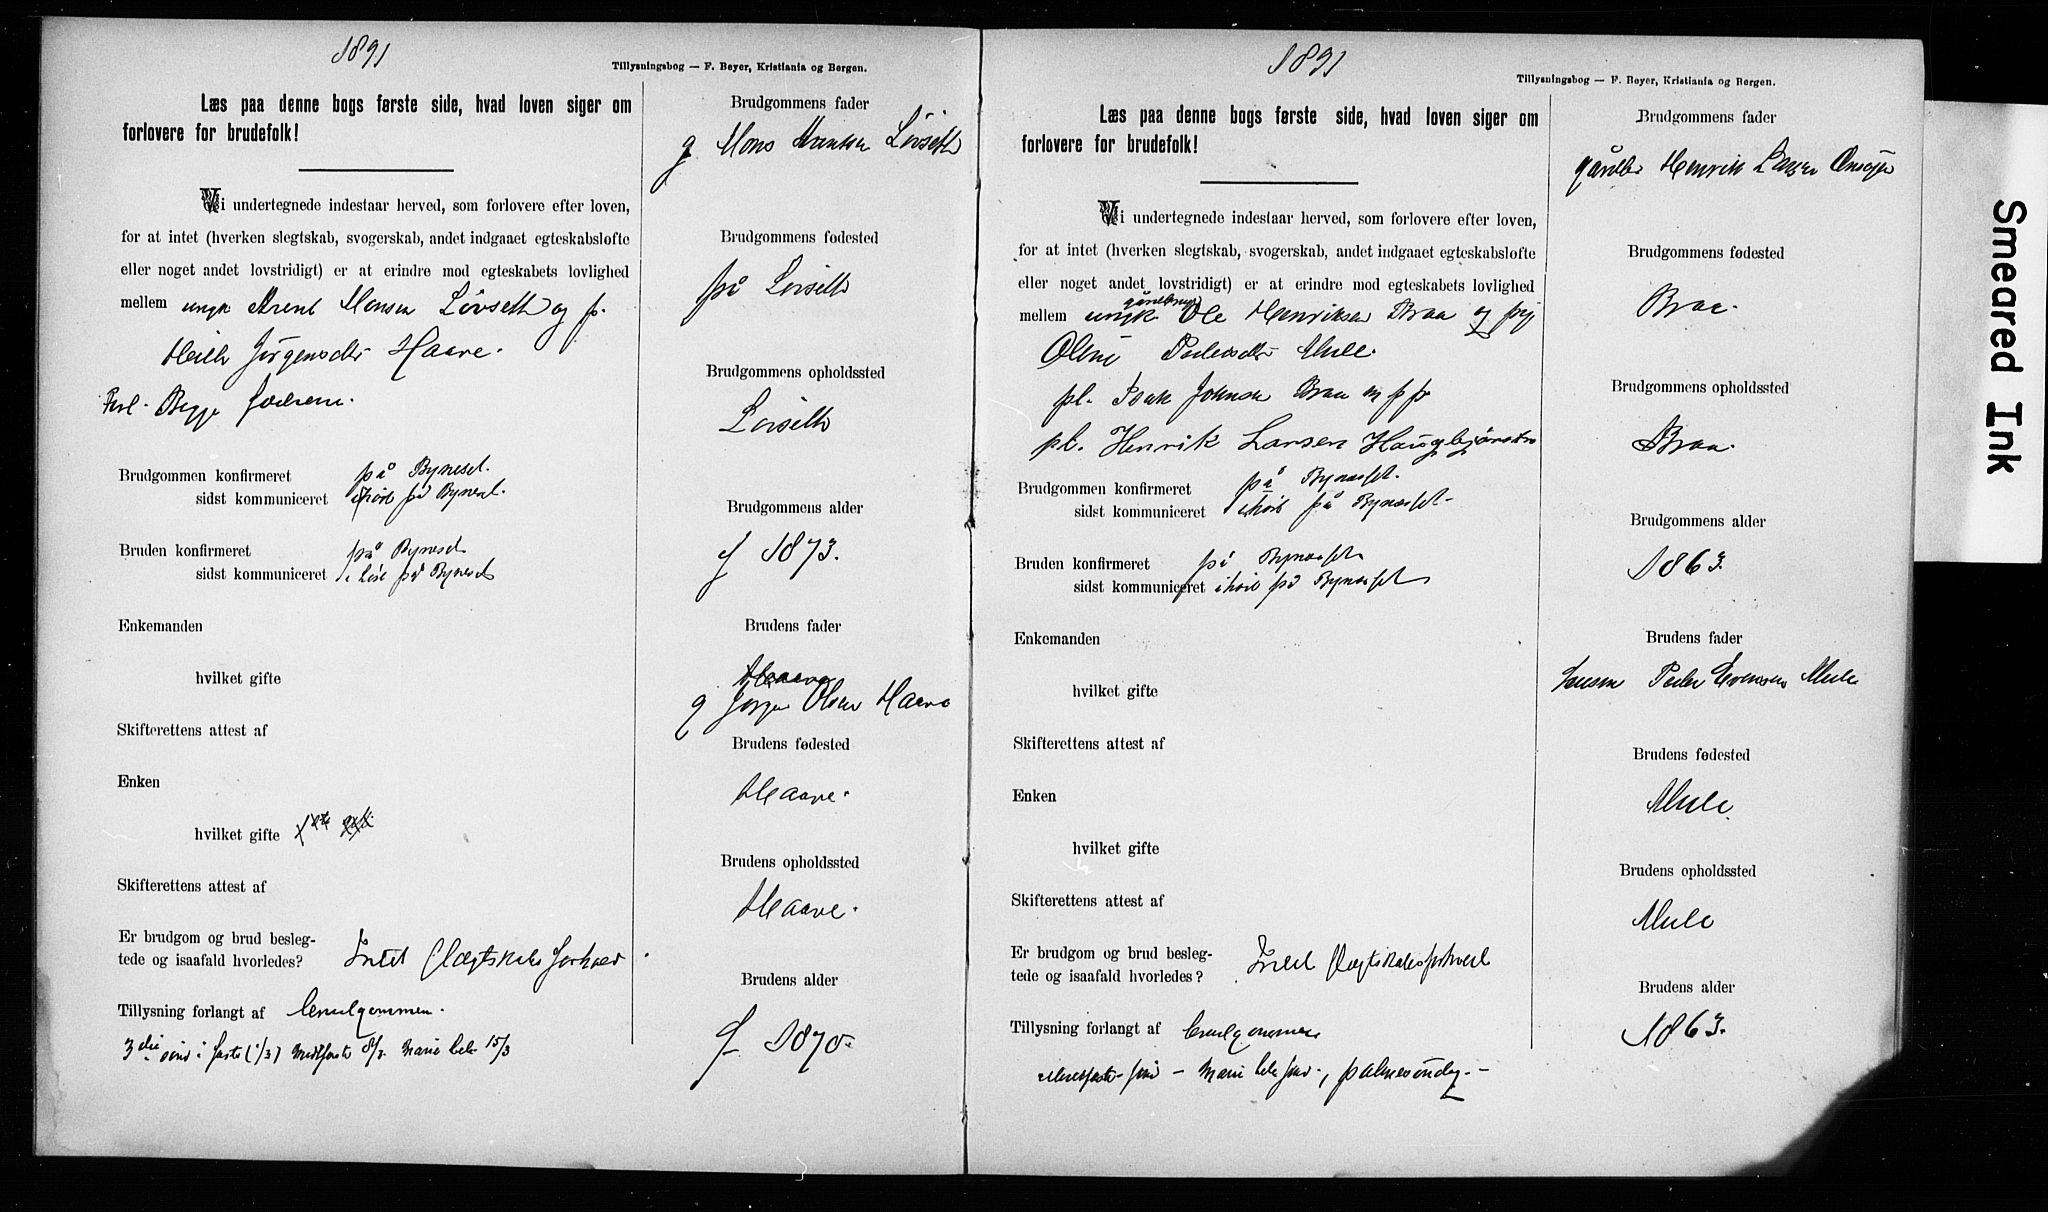 1891
Tillysningsbog — F. Beyer, Kristiania og Bergen.
Læs paa denne bogs første side, hvad loven siger om
forlovere for brudefolk!
Vi undertegnede indestaar herved, som forlovere efter loven,
for at intet (hverken slegtskab, svogerskab, andet indgaaet egteskabsløfte
eller noget andet lovstridigt) er at erindre mod egteskabets lovlighed
mellem ungk Arent Monsen Løvseth og p.
Jørgensdtr Haave.
Forl. Begge
Brudgommen konfirmeret på Byneset.
sidst kommuniceret ihøst på Byneset.
Bruden konfirmeret på Byneset
sidst kommuniceret i høst på Byneset
Enkemanden
hvilket gifte
Skifterettens attest af
Enken
hvilket gifte
Skifterettens attest af
Er brudgom og brud besleg-
tede og isaafald hvorledes? Intet Slægtskabsforhold
Tillysning forlangt af Brudgommen.
3die sønd i faste (1/3) Midfaste 8/3. Marie bek 15/3
Brudgommens fader
g Mons Løvseth
Brudgommens fødested
på Løvseth
Brudgommens opholdssted
Løvseth
Brudgommens alder
f 1873.
Brudens fader
Haave
g Jørgen Olsen Haave
Brudens fødested
Haave.
Brudens opholdssted
Haave.
Brudens alder
f. 1870.
1891
Tillysningsbog — F. Beyer, Kristiania og Bergen.
Læs paa denne bogs første side, hvad loven siger om
forlovere for brudefolk!
Vi undertegnede indestaar herved, som forlovere efter loven,
for at intet (hverken slegtskab, svogerskab, andet indgaaet egteskabsløfte
eller noget andet lovstridigt) er at erindre mod egteskabets lovlighed
gårdbruger
mellem ungk Ole Henriksen Braa og pig
Oline Pedersdtr Mule.
pl. Isak Johnsen Braa m p p
pl. Henrik Larsen
Brudgommen konfirmeret på Bynæsset.
sidst kommuniceret ihøst på Bynæsset
Bruden konfirmeret på Bynæsset
sidst kommuniceret ihøst på Bynæsset
Enkemanden
hvilket gifte
Skifterettens attest af
Enken
hvilket gifte
Skifterettens attest af
Er brudgom og brud besleg-
tede og isaafald hvorledes? Intet Slægtskabsforhold
Tillysning forlangt af Brudgommen
Midfaste sønd — Marie bek sønd., palmesöndag. —
Brudgommens fader
gårdbr Henrik Larsen
Brudgommens fødested
Braa.
Brudgommens opholdssted
Braa.
Brudgommens alder
1863.
Brudens fader
Husm Peder Evensen Mule
Brudens fødested
Mule.
Brudens opholdssted
Mule
Brudens alder
1863.
Smeared Ink